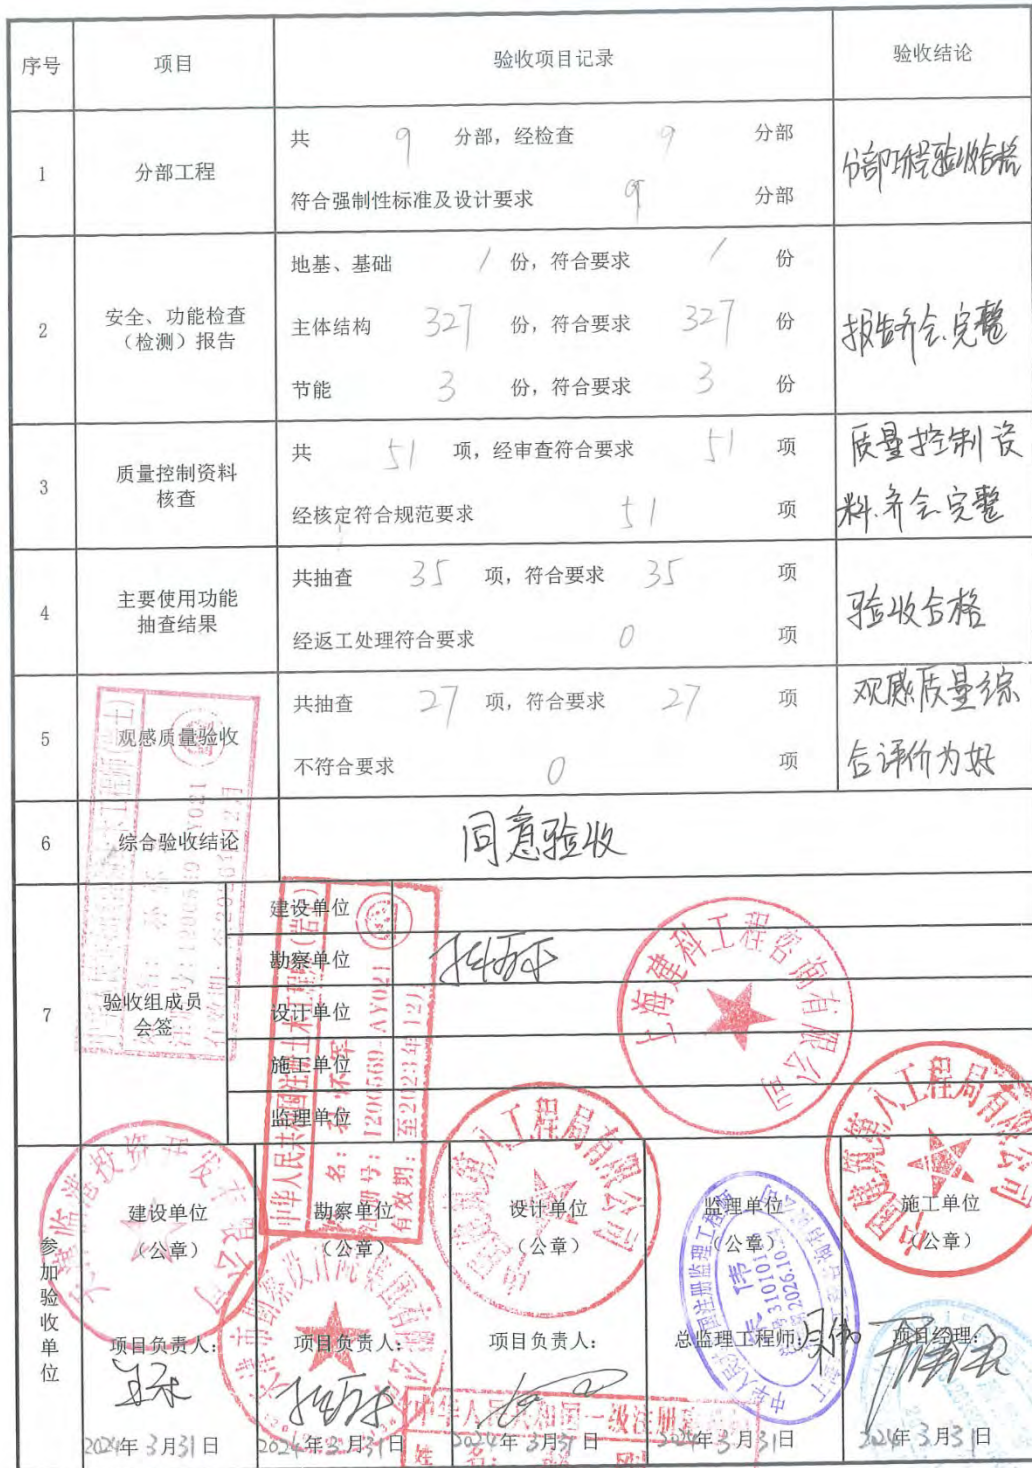 序号 项目 验收项目记录 验收结论
1 分部工程 共 9 分部，经检查 9 分部
符合强制性标准及设计要求 9 分部
分部工程验收合格
2 安全、功能检查
（检测）报告
地基、基础 1 份，符合要求 1 份
主体结构 327 份，符合要求 327 份
节能 3 份，符合要求 3 份
报告齐全、完整
3 质量控制资料
核查
共 51 项，经审查符合要求 51 项
经核定符合规范要求 51 项
质量控制资
料、齐全完整
4 主要使用功能
抽查结果
共抽查 35 项，符合要求 35 项
经返工处理符合要求 0 项
验收合格
5 观感质量验收
共抽查 27 项，符合要求 27 项
不符合要求 0 项
观感质量综
合评价为好
6 综合验收结论 同意验收
7 验收组成员
会签
建设单位
勘察单位
设计单位
施工单位
监理单位
上海建科工程咨询有限公司
中华人民共和国注册土木工程师(岩土)
注册号：1200569-AY021
有效期：至2023年12月
参加验收单位
建设单位
（公章）
项目负责人：
2024年3月31日
勘察单位
（公章）
项目负责人：
2024年3月31日
设计单位
（公章）
项目负责人：
2024年3月31日
监理单位
（公章）
总监理工程师：
2024年3月31日
施工单位
（公章）
项目经理：
2024年3月31日
中国建筑第八工程局有限公司
中华人民共和国一级注册
姓名：